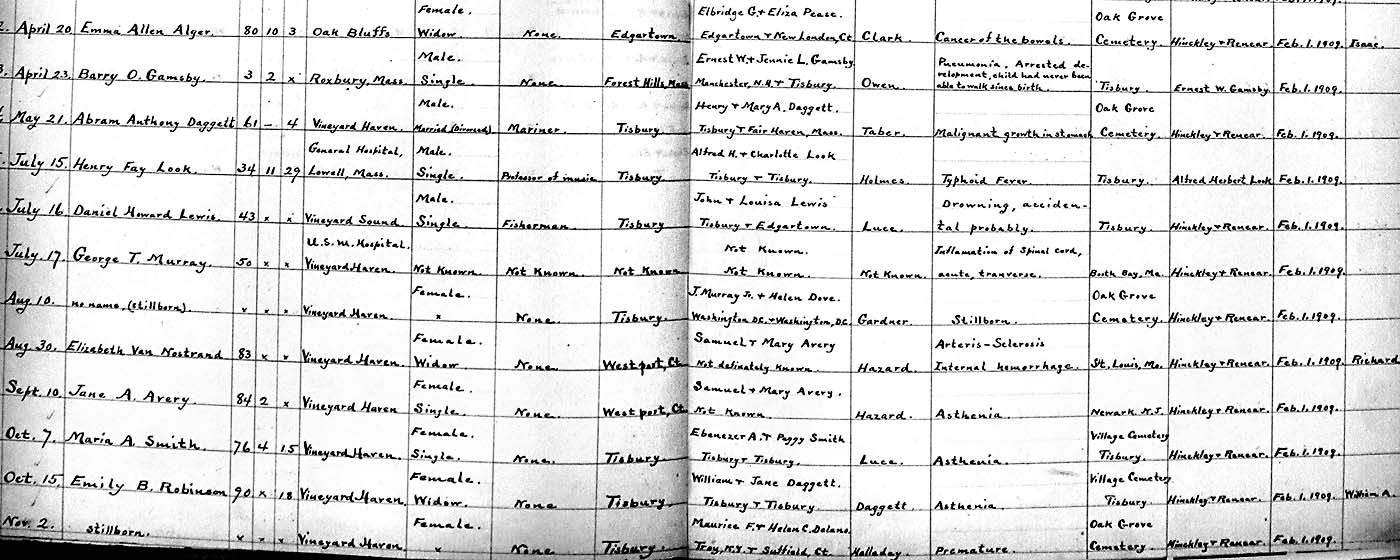 Female. Elbridge G. + Eliza Pease. Oak Grove
April 20. Emma Allen Alger. 80 10 3 Oak Bluffs Widow. None. Edgartown. Edgartown + New London, Ct. Clark. Cancer of the bowels. Cemetery. Hinckley + Renear. Feb. 1. 1909. Isaac
Male. Ernest W. + Jennie L. Gamsby Pneumonia. Arrested de-
velopment, child had never been
April 23. Barry O. Gamsby. 3 2 x Roxbury, Mass. Single None Forest Hills, Mass Manchester, N.H. + Tisbury. Owen. able to walk since birth. Tisbury. Ernest W. Gamsby. Feb. 1. 1909.
Male. Henry + Mary A. Daggett. Oak Grove
May 21. Abram Anthony Daggett 61 – 4 Vineyard Haven. Married (Divorced). Mariner. Tisbury Tisbury + Fair Haven, Mass. Taber. Malignant growth in stomach Cemetery. Hinckley + Renear. Feb. 1. 1909.
General Hospital, Male. Alfred H. + Charlotte Look
July 15. Henry Fay Look. 34 11 29 Lowell, Mass. Single. Professor of music Tisbury Tisbury + Tisbury. Holmes. Typhoid Fever. Tisbury. Alfred Herbert Look Feb. 1. 1909.
Male. John + Louisa Lewis Drowning, acciden-
July 16. Daniel Howard Lewis. 43 x x Vineyard Sound Single. Fisherman. Tisbury Tisbury + Edgartown. Luce. tal probably. Tisbury. Hinckley + Renear. Feb. 1. 1909.
U.S.M. Hospital. Not Known. Inflamation of Spinal cord,
July. 17. George T. Murray. 50 x x Vineyard Haven. Not Known Not Known. Not Known Not Known. Not Known. acute, tranverse. Booth Bay, Me. Hinckley + Renear. Feb. 1. 1909.
Female. J. Murray Jr. + Helen Dove. Oak Grove
Aug. 10. no name, (stillborn). x x x Vineyard Haven. x None. Tisbury. Washington D.C. + Washington, D.C. Gardner. Stillborn. Cemetery. Hinckley + Renear. Feb. 1. 1909.
Female. Samuel + Mary Avery Arteris-Sclerosis
Aug 30. Elizabeth Van Nostrand 83 x x Vineyard Haven. Widow None Westport, Ct. Not definately known. Hazard. Internal hemorrhage. St. Louis, Mo. Hinckley + Renear. Feb. 1. 1909. Richard
Female. Samuel + Mary Avery.
Sept. 10. Jane A. Avery. 84 2 x Vineyard Haven Single. None. Westport, Ct. Not Known. Hazard. Asthenia. Newark. N.J. Hinckley + Renear. Feb. 1. 1909.
Female. Ebenezer A. + Peggy Smith Village Cemetery
Oct. 7. Maria A. Smith. 76 4 15 Vineyard Haven. Single. None. Tisbury. Tisbury + Tisbury. Luce. Asthenia. Tisbury. Hinckley + Renear. Feb. 1. 1909.
Female. William + Jane Daggett. Village Cemetery
Oct. 15. Emily B. Robinson 90 x 18 Vineyard Haven. Widow. None Tisbury Tisbury + Tisbury Daggett Asthenia. Tisbury. Hinckley + Renear. Feb. 1. 1909. William A.
Female. Maurice F. + Helen C. Delano. Oak Grove
Nov. 2. stillborn. x x x Vineyard Haven x None Tisbury. Troy, N.Y. + Suffield, Ct. Holladay Premature. Cemetery. Hinckley + Renear. Feb. 1. 1909.